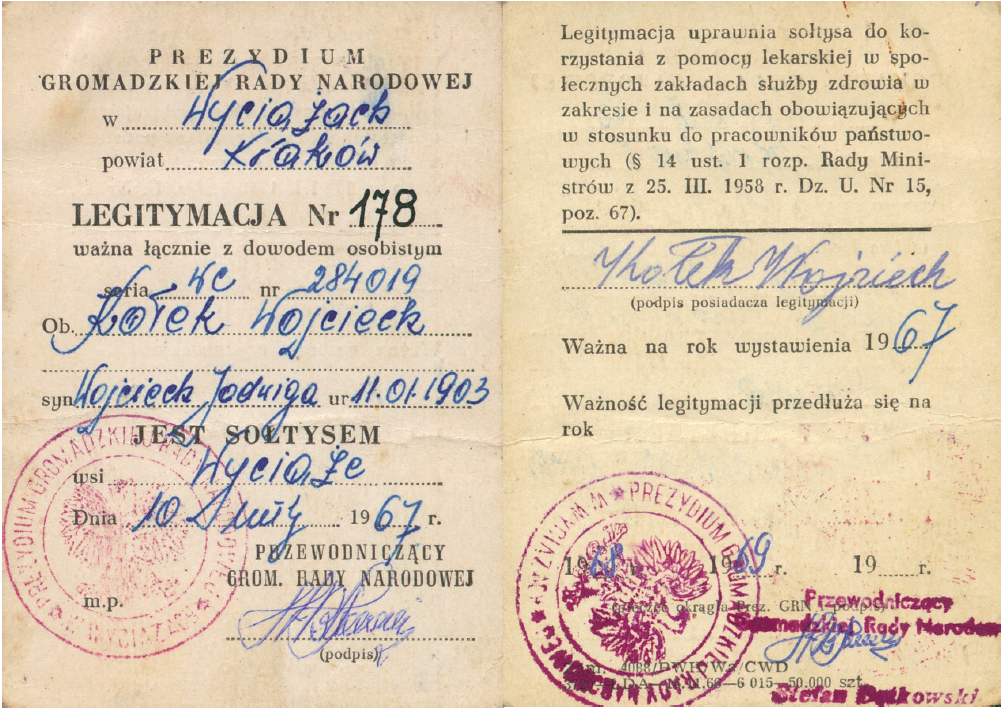 PREZYDIUM
GROMADZKIEJ RADY NARODOWEJ
w Wyciążach
powiat Kraków
LEGITYMACJA Nr 178
ważna łącznie z dowodem osobistym
seria WC nr 284019
Ob. Kołek Wojciech
syn Wojciech Jadwiga ur 11.01.1903
JEST SOŁTYSEM
wsi Wyciąże
Dnia 10 Luty 1967 r.
PRZEWODNICZĄCY
GROM. RADY NARODOWEJ
m.p.
(podpis)
Legitymacja uprawnia sołtysa do ko-
rzystania z pomocy lekarskiej w spo-
łecznych zakładach służby zdrowia w
zakresie i na zasadach obowiązujących
w stosunku do pracowników państwo-
wych (§ 14 ust. 1 rozp. Rady Mini-
strów z 25. III. 1958 r. Dz. U. Nr 15,
poz. 67).
Kołek Wojciech
(podpis posiadacza legitymacji)
Ważna na rok wystawienia 1967
Ważność legitymacji przedłuża się na
rok
1968 r. 1969 r. 19 r.
(pieczęć okrągła Prez. GRN i podpis)
Przewodniczący
Gromadzkiej Rady Narodowej
4088/
/CWD
6 015—50.000 szt.
Stefan Dętkowski